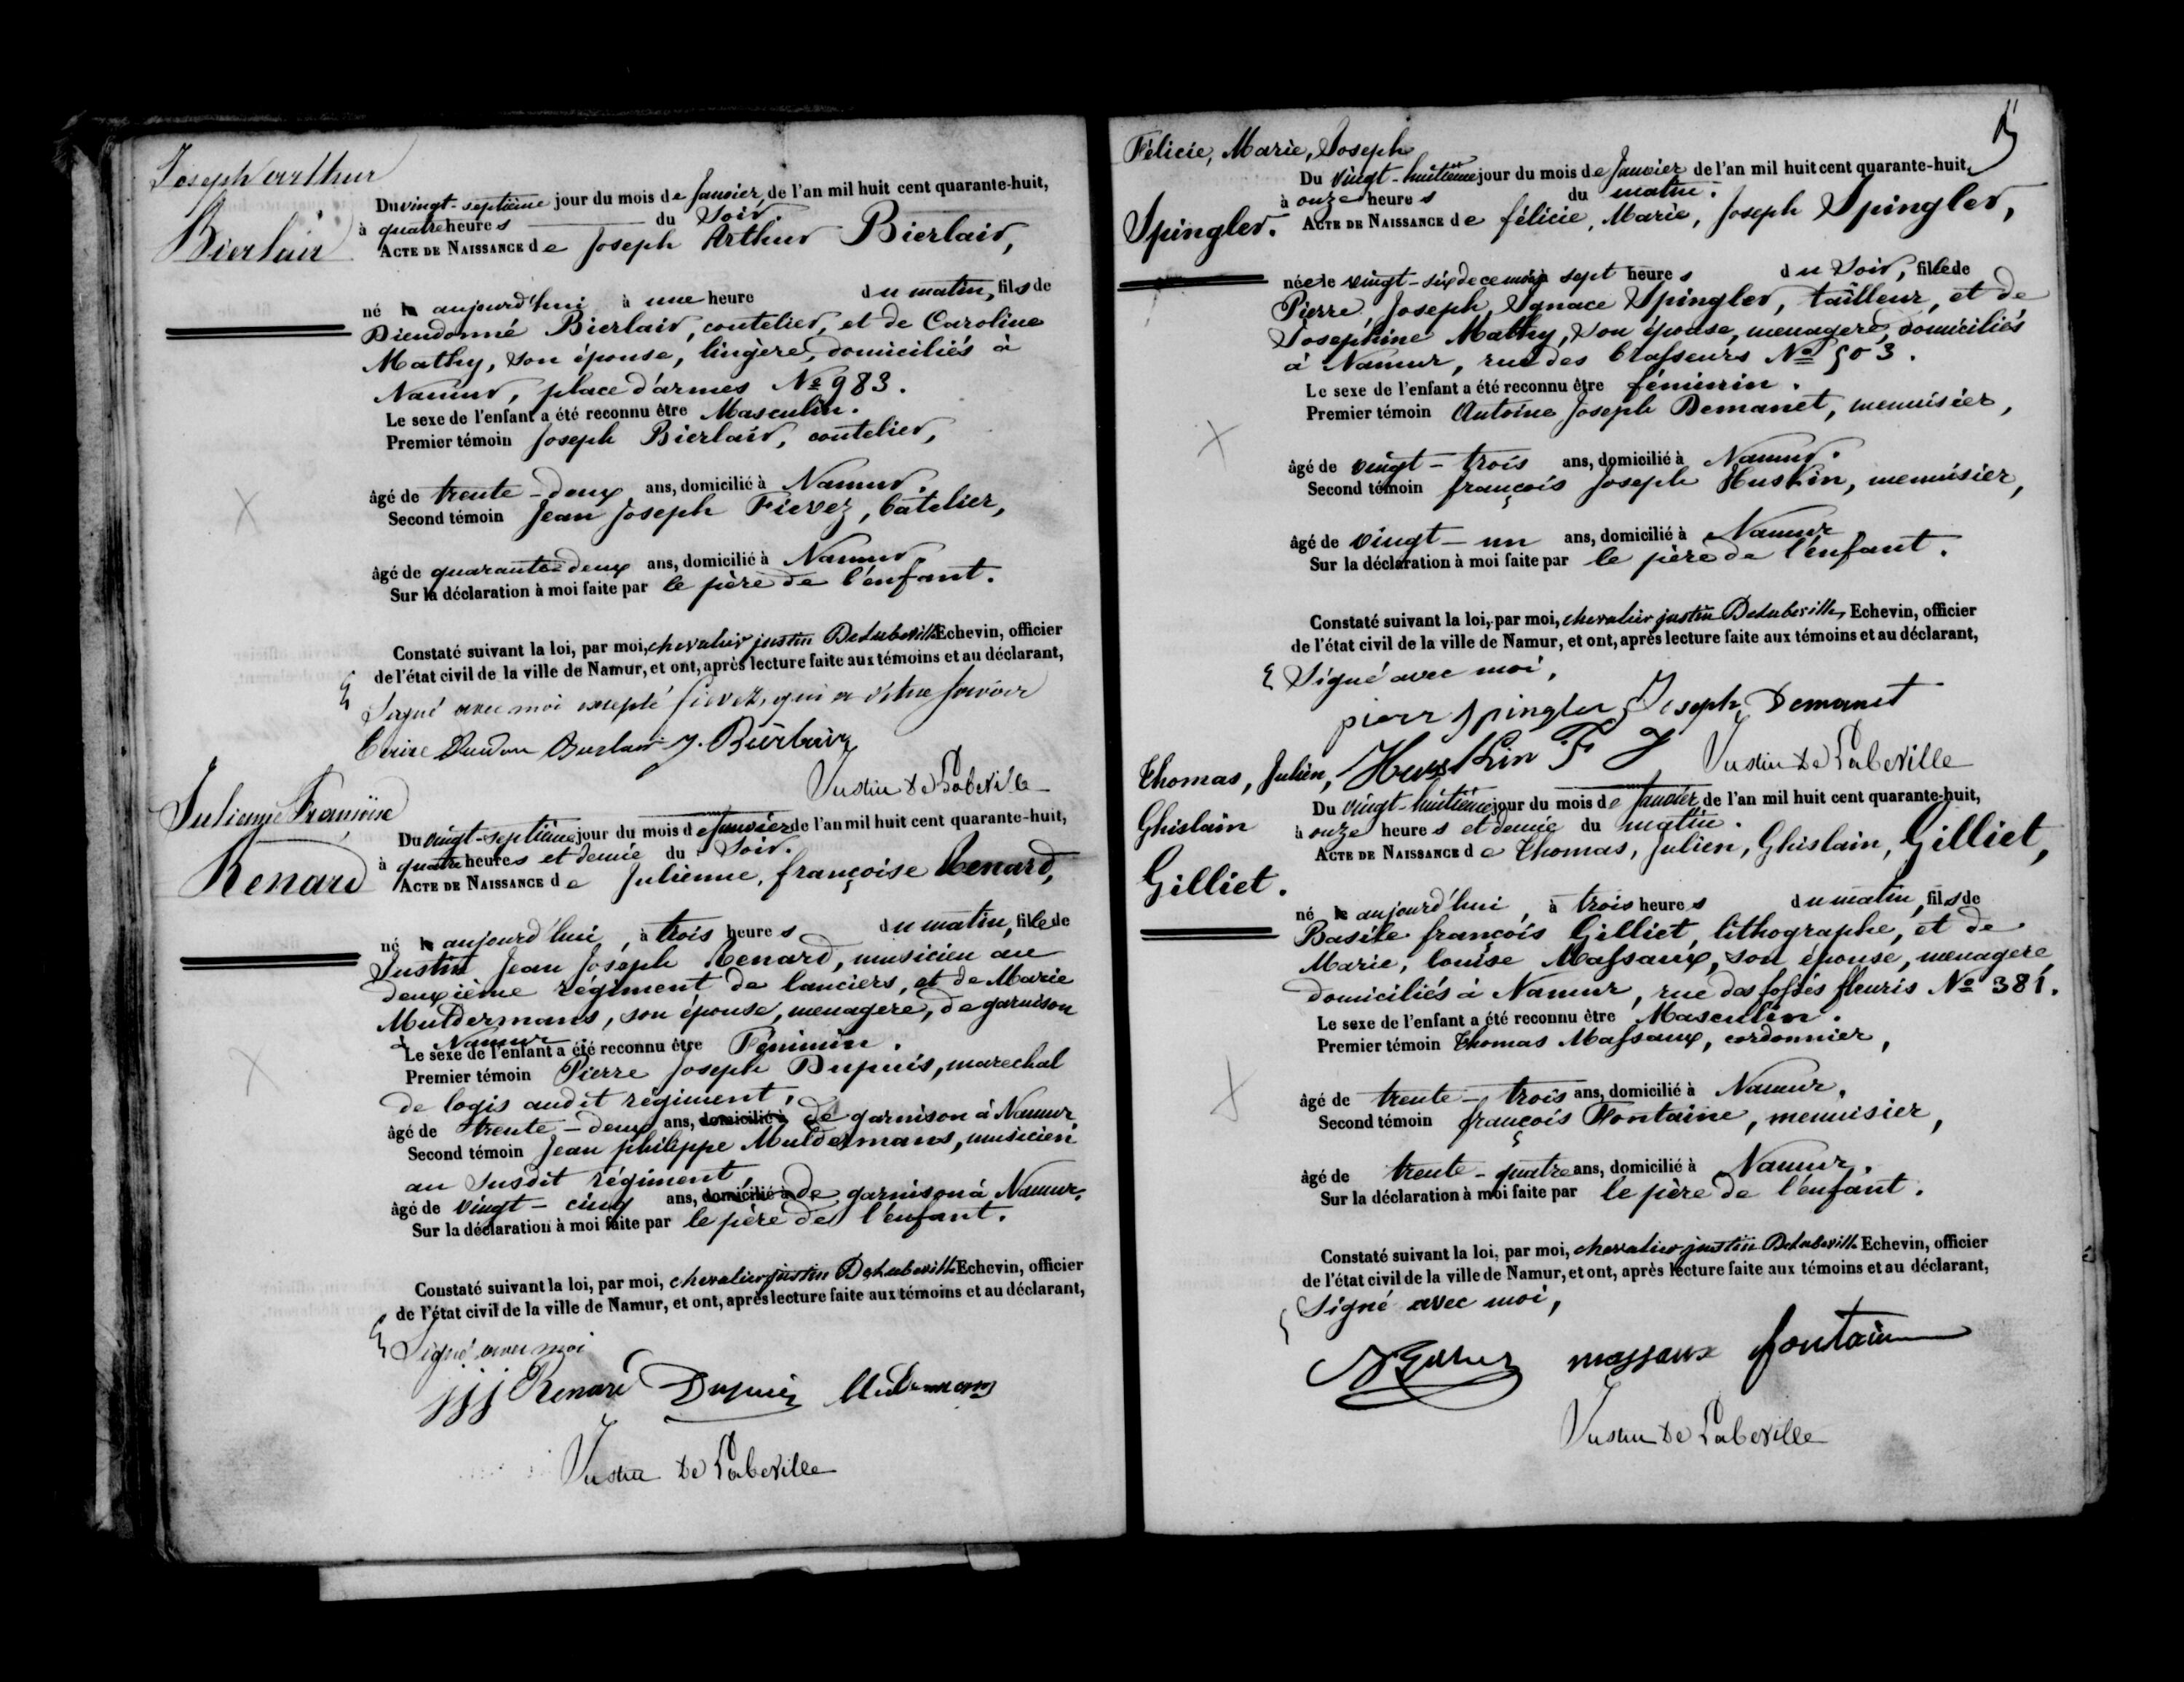 Joseph arthur
Bierlair
Du vingt-septième jour du mois de Janvier, de l'an mil huit cent quarante-huit,
à quatre heures du Soir.
ACTE DE NAISSANCE de Joseph Arthur Bierlair,
né le aujourd'hui à une heure du matin, fils de
Dieudonné Bierlair, coutelier, et de Caroline
Mathy, son épouse, lingère, domiciliés à
Namur, place d'armes Nº 983.
Le sexe de l'enfant a été reconnu être Masculin.
Premier témoin Joseph Bierlair, coutelier,
âgé de trente-deux ans, domicilié à Namur.
Second témoin Jean Joseph Fievez, batelier,
âgé de quarante-deux ans, domicilié à Namur.
Sur la déclaration à moi faite par le père de l'enfant.
Constaté suivant la loi, par moi, chevalier justin DeLabeville Echevin, officier
de l'état civil de la ville de Namur, et ont, après lecture faite aux témoins et au déclarant,
Signé avec moi excepté fievez, qui a dit ne savoir
Ecrire J. Bierlair
Justin De Labeville
Julienne Françoise
Renard
Du vingt-septième jour du mois de Janvier de l'an mil huit cent quarante-huit,
à quatre heures et demie du Soir.
ACTE DE NAISSANCE de Julienne, françoise Renard,
né le aujourd'hui, à trois heures du matin, fille de
Justin Jean Joseph Renard, musicien au
deuxième régiment de lanciers, et de Marie
Muldermans, son épouse, menagere, de garnison
à Namur
Le sexe de l'enfant a été reconnu être Féminin.
Premier témoin Pierre Joseph Dupuis, marechal
de logis audit régiment,
âgé de trente-deux ans, domicilié à de garnison à Namur,
Second témoin Jean philippe Muldermans, musicien
au susdit régiment,
âgé de vingt-cinq ans, domicilié à de garnison à Namur,
Sur la déclaration à moi faite par le père de l'enfant.
Constaté suivant la loi, par moi, chevalier justin DeLabeville Echevin, officier
de l'état civil de la ville de Namur, et ont, après lecture faite aux témoins et au déclarant,
Signé avec moi
jjj Renard Dupuis Muldermans
Justin De Labeville
Félicie, Marie, Joseph
Spingler.
Du vingt-huitième jour du mois de Janvier de l'an mil huit cent quarante-huit,
à onze heures du matin.
ACTE DE NAISSANCE de félicie, Marie, Joseph Spingler,
née le vingt-six de ce mois à sept heures du Soir, fille de
Pierre, Joseph, Ignace Spingler, tailleur, et de
Josephine Mathy, son épouse, menagere, domiciliés
à Namur, rue des brasseurs Nº 503.
Le sexe de l'enfant a été reconnu être féminin.
Premier témoin Antoine Joseph Demanet, menuisier,
âgé de vingt-trois ans, domicilié à Namur.
Second témoin françois Joseph Huskin, menuisier,
âgé de vingt-un ans, domicilié à Namur
Sur la déclaration à moi faite par le père de l'enfant.
Constaté suivant la loi, par moi, chevalier justin DeLabeville, Echevin, officier
de l'état civil de la ville de Namur, et ont, après lecture faite aux témoins et au déclarant,
Signé avec moi,
pierr spingler Joseph Demanet
Huskin F J Justin De Labeville
Thomas, Julien,
Ghislain
Gilliet.
Du vingt-huitième jour du mois de Janvier de l'an mil huit cent quarante-huit,
à onze heures et demie du matin.
ACTE DE NAISSANCE de Thomas, Julien, Ghislain, Gilliet,
né le aujourd'hui, à trois heures du matin, fils de
Basile françois Gilliet, lithographe, et de
Marie, louise Massaux, son épouse, menagere,
domiciliés à Namur, rue des fossés fleuris Nº 381.
Le sexe de l'enfant a été reconnu être Masculin.
Premier témoin Thomas Massaux, cordonnier,
âgé de trente-trois ans, domicilié à Namur.
Second témoin françois Fontaine, menuisier,
âgé de trente-quatre ans, domicilié à Namur.
Sur la déclaration à moi faite par le père de l'enfant.
Constaté suivant la loi, par moi, chevalier justin DeLabeville Echevin, officier
de l'état civil de la ville de Namur, et ont, après lecture faite aux témoins et au déclarant,
Signé avec moi,
massaux fontaine
Justin De Labeville